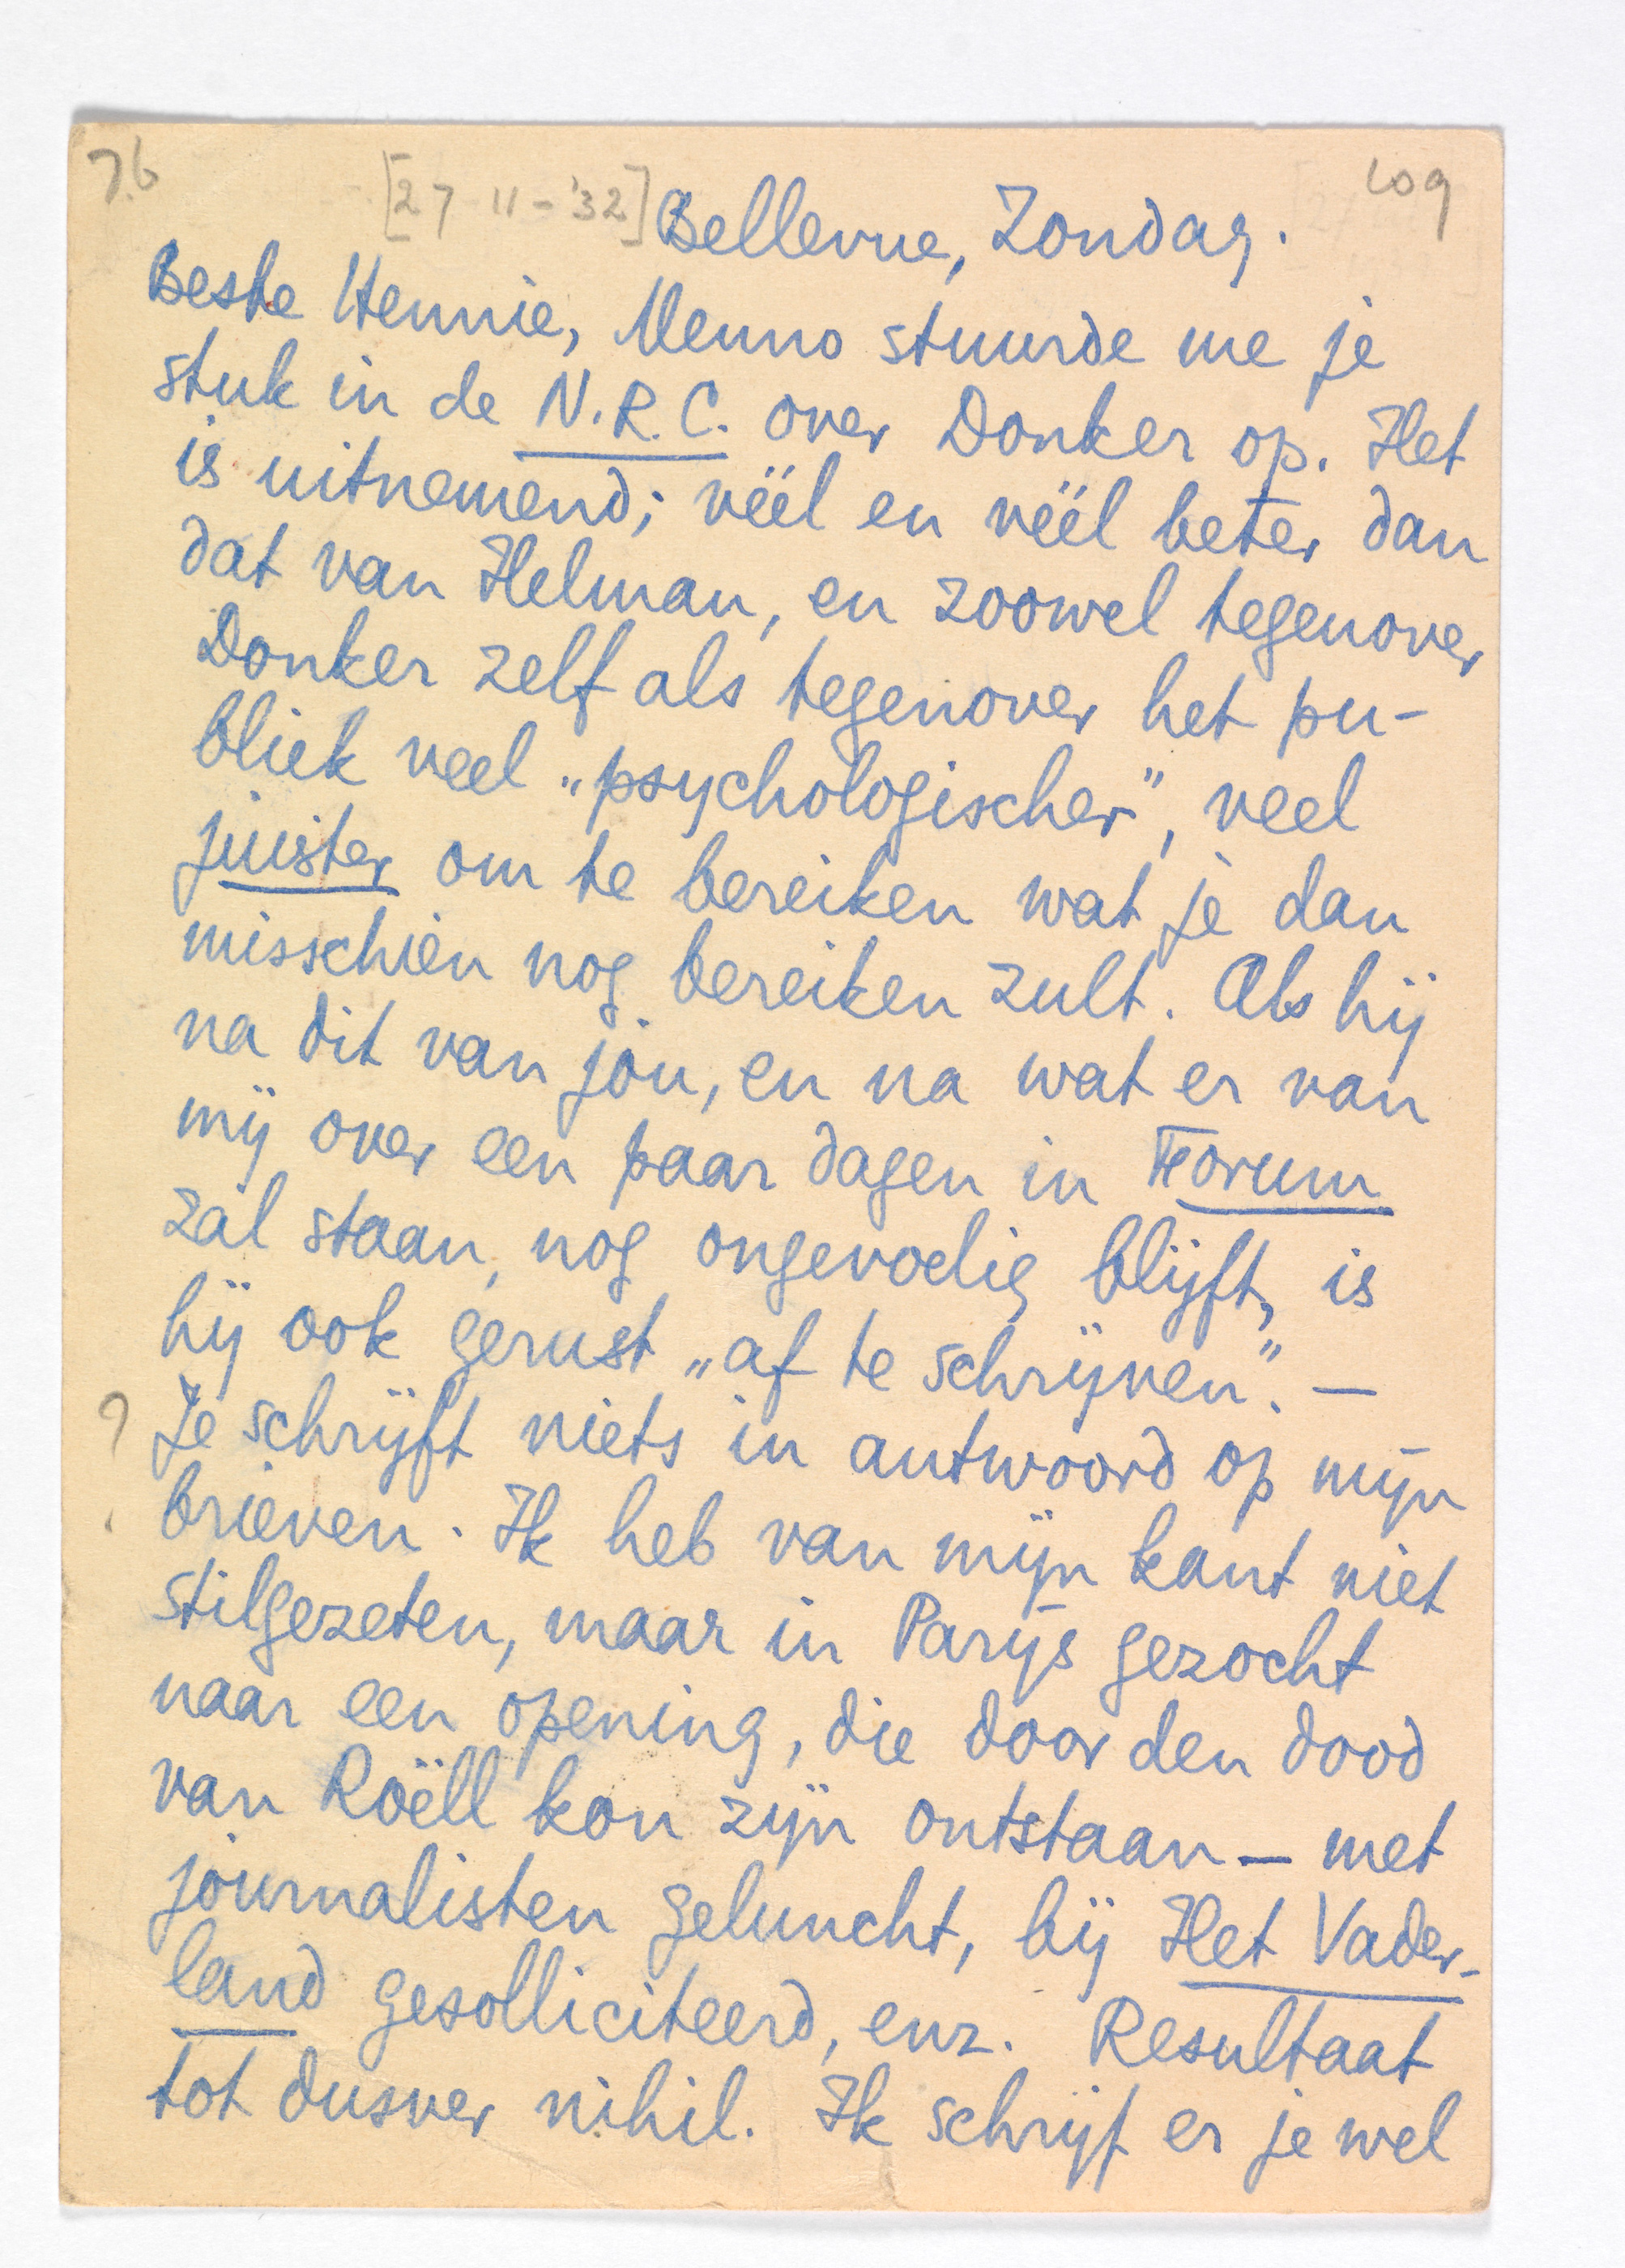 76 [27-11-'32] 109
Bellevue, Zondag.
Beste Hennie, Menno stuurde me je
stuk in de N.R.C. over Donker op. Het
is uitnemend; véél en véél beter dan
dat van Helman, en zoowel tegenover
Donker zelf als tegenover het pu-
bliek veel „psychologischer”, veel
juister om te bereiken wat je dan
misschien nog bereiken zult. Als hij
na dit van jóu, en na wat er van
mij over een paar dagen in Forum
zal staan, nog ongevoelig blijft, is
hij ook gerust „af te schrijven”. —
? Je schrijft niets in antwoord op mijn
brieven. Ik heb van mijn kant niet
stilgezeten, maar in Parijs gezocht
naar een opening, die door den dood
van Roëll kon zijn ontstaan — met
journalisten geluncht, bij Het Vader-
land gesolliciteerd, enz. Resultaat
tot dusver nihil. Ik schrijf er je wel